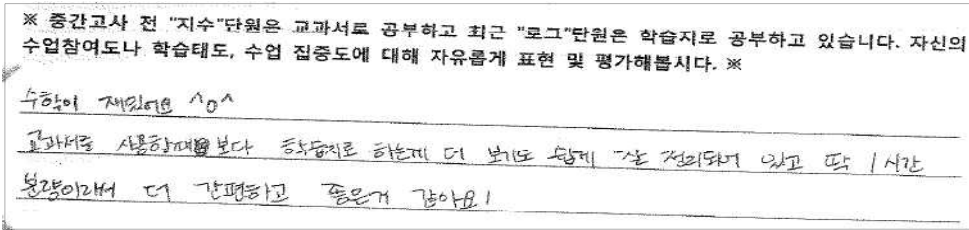 ※ 중간고사 전 "지수"단원은 교과서로 공부하고 최근 "로그"단원은 학습지로 공부하고 있습니다. 자신의
수업참여도나 학습태도, 수업 집중도에 대해 자유롭게 표현 및 평가해봅시다. ※
수학이 재밌어요 ^o^
교과서를 사용할때보다 학습지로 하는게 더 보기도 쉽게 잘 정리되어 있고 딱 1시간
분량이라서 더 간편하고 좋은거 같아요!